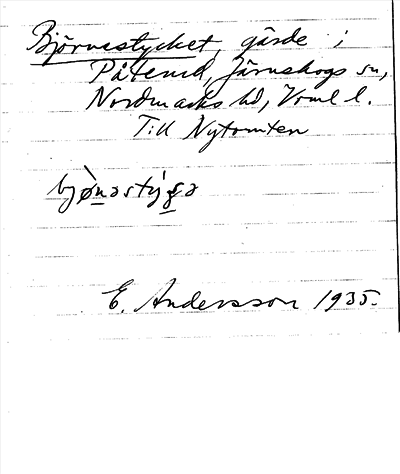 Björnestycket, gärde i
Påterud, Järnskogs sn,
Nordmarks hd, Vrml l.
Till Nytomten
E. Andersson 1935.